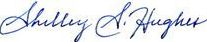 Shelley S. Hughes